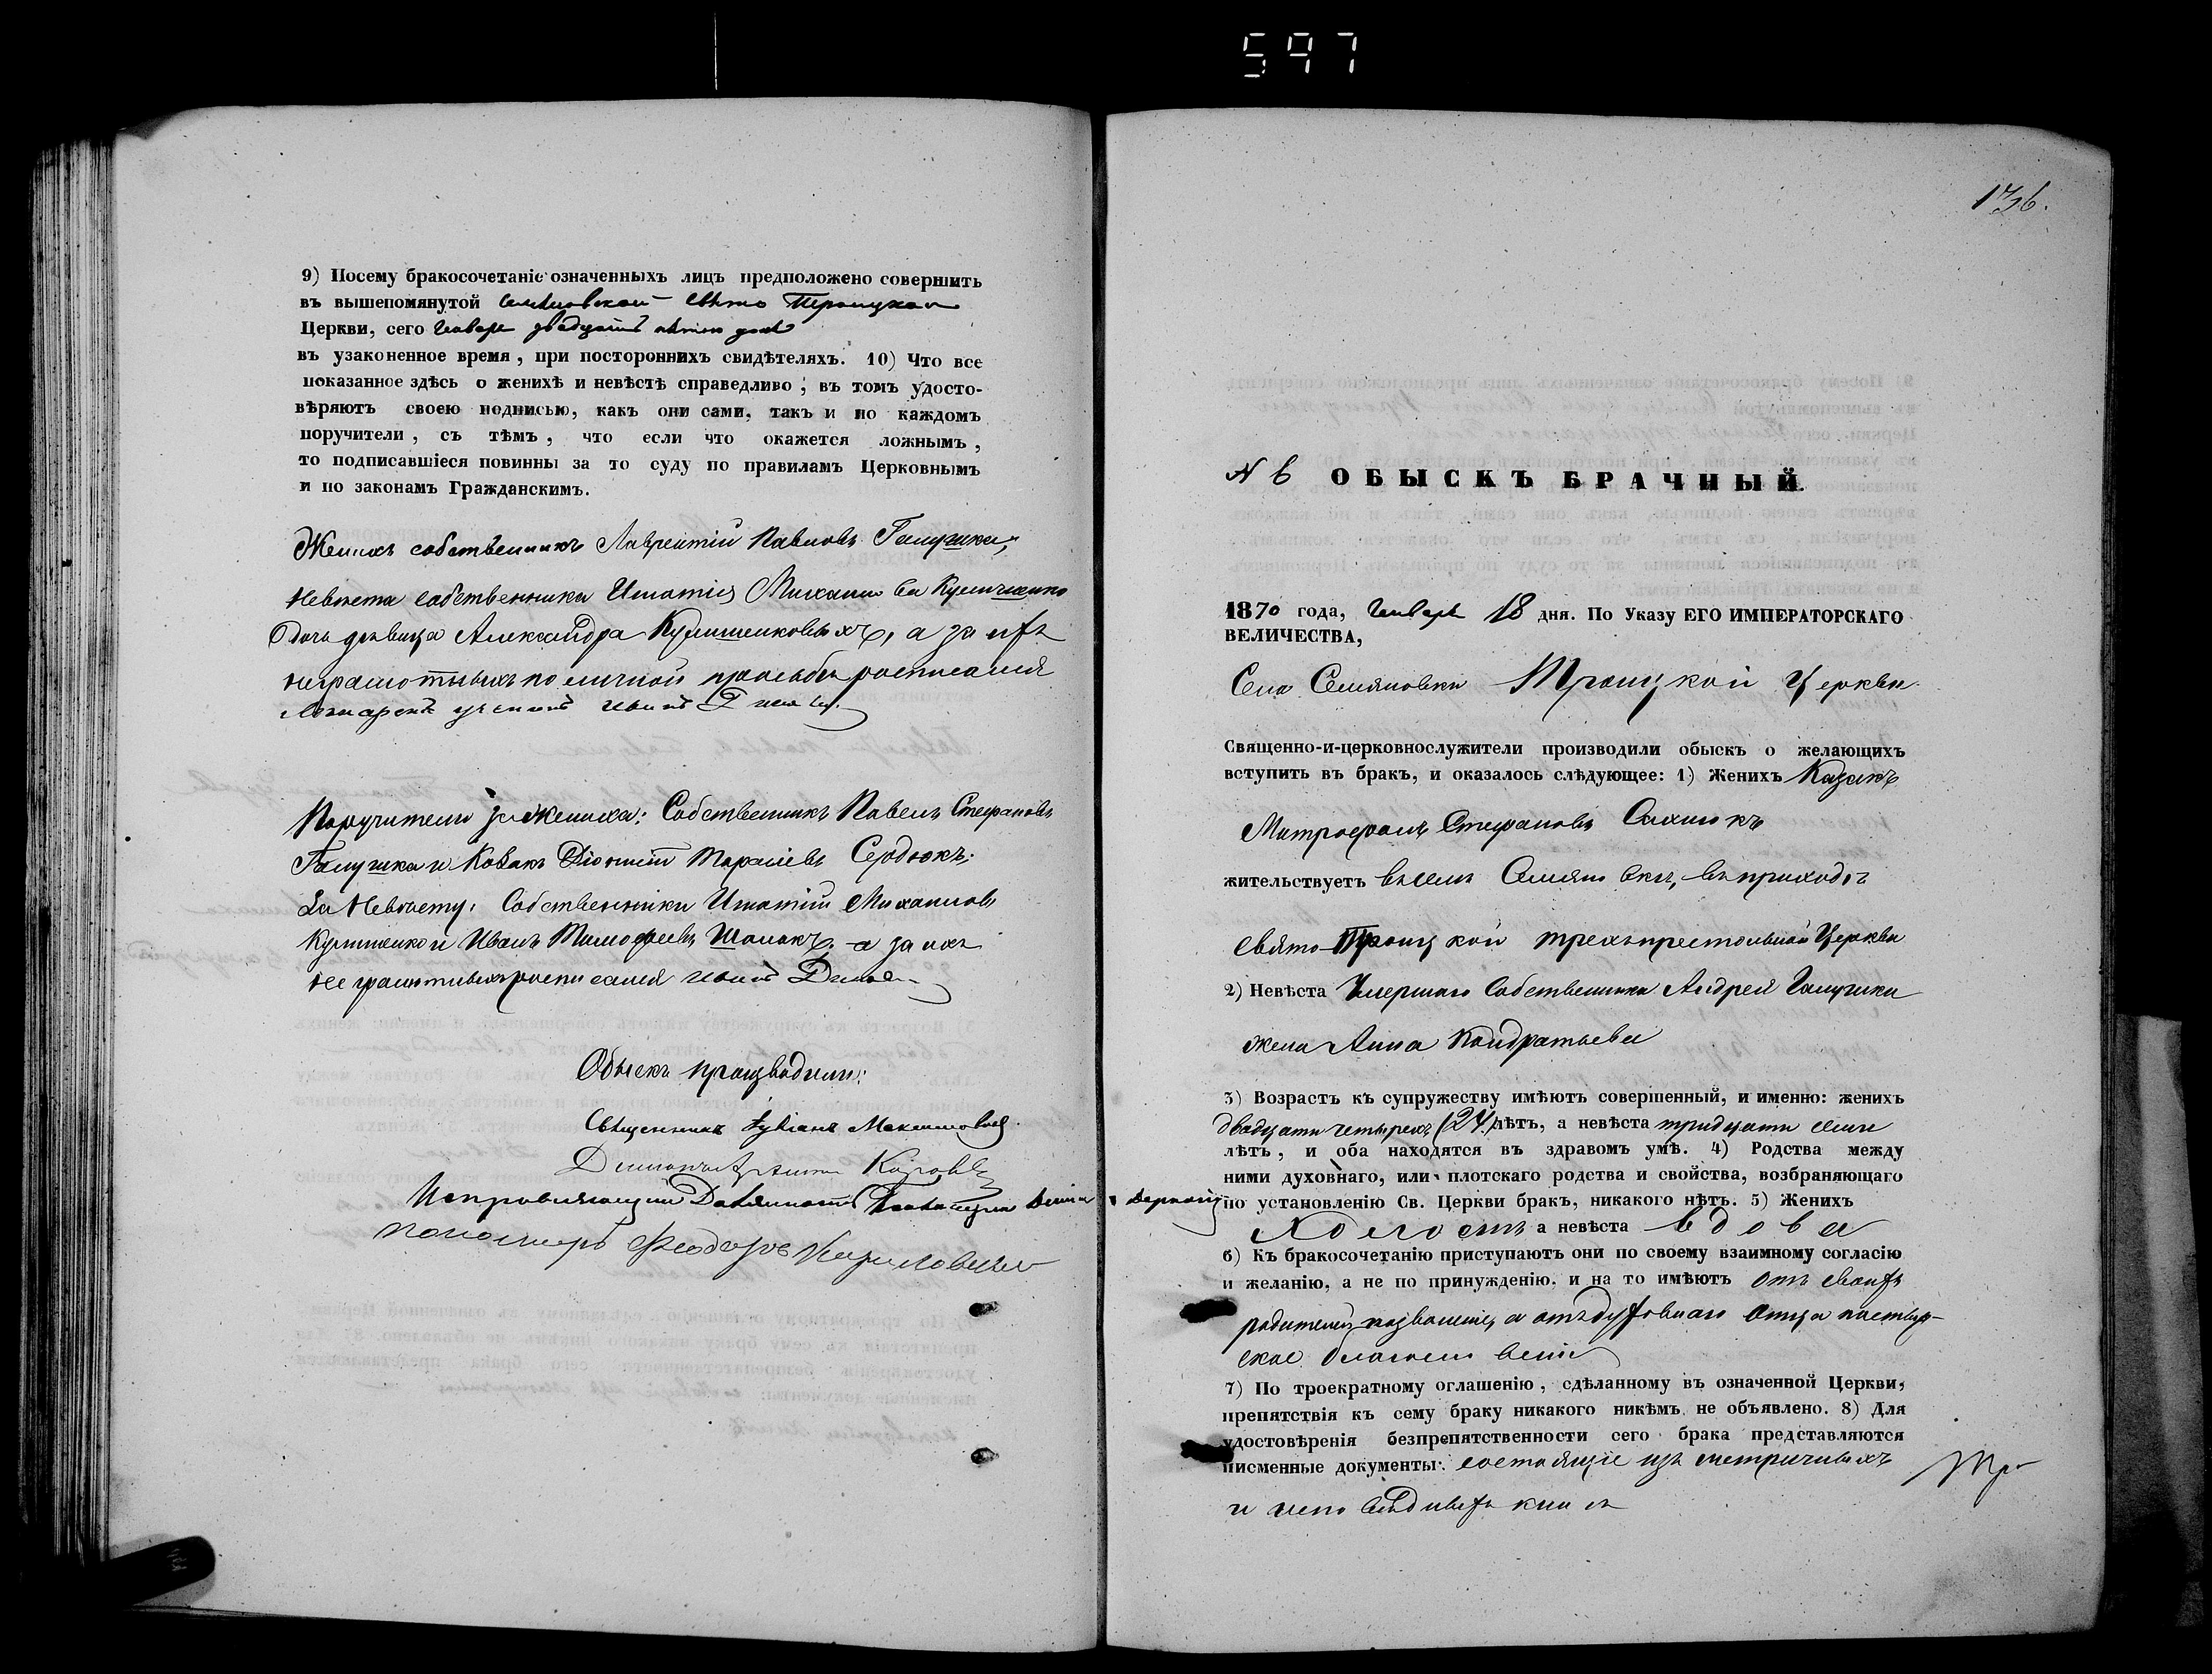 597
9) Посему бракосочетаніе означенныхъ лицъ предположено совершить
въ вышепомянутой Семяновской Свято Троицкой
Церкви, сего Генваря двадцать пятого дня
въ узаконенное время, при постороннихъ свидѣтеляхъ. 10) Что все
показанное здѣсь о женихѣ и невѣстѣ справедливо, въ томъ удосто-
вѣряютъ своею подписью, какъ они сами, такъ и по каждомъ
поручители, съ тѣмъ, что если что окажется ложнымъ,
то подписавшіеся повинны за то суду по правиламъ Церковнымъ
и по законамъ Гражданскимъ.
Женихъ собственникъ Лаврентій Павловъ Галушка,
Невѣста собственника Игнатія Михайлова Кулишенко
дочь дѣвица Александра Кулишенковыхъ, а за нихъ
неграмотныхъ по личной прозьбѣ росписался
Иванъ
Поручители за Жениха: Собственникъ Павелъ Стефановъ
Галушка и Козакъ Діонисій Тарасіевъ Сердюкъ.
За Невѣсту: Собственники Игнатій Михаиловъ
Кулишенко и Иванъ Тимофеевъ а за ихъ
неграмотныхъ росписался Иванъ
Обыскъ производили:
Священникъ Максимовичъ
Исправляющій Должность
пономаръ Феодоръ
136.
N 6 ОБЫСКЪ БРАЧНЫЙ.
1870 года, Генваря 18 дня. По Указу ЕГО ИМПЕРАТОРСКАГО
ВЕЛИЧЕСТВА,
Села Семяновки Троицкой Церкви
Священно-и-церковнослужители производили обыскъ о желающихъ
вступить въ бракъ, и оказалось слѣдующее: 1) Женихъ Казакъ
Митрофанъ Стефановъ Сахнюкъ
жительствуетъ въ селѣ Семяновкѣ, въ приходѣ
Свято-Троицкой трехъпрестольной Церкви
2) Невѣста Умершаго Собственника Андрея Галушки
жена Анна Кондратьева
3) Возрастъ къ супружеству имѣютъ совершенный, и именно: женихъ
двадцати четырехъ (24) лѣтъ, а невѣста тридцати семи
лѣтъ, и оба находятся въ здравомъ умѣ. 4) Родства между
ними духовнаго, или плотскаго родства и свойства, возбраняющаго
по установленію Св. Церкви бракъ, никакого нѣтъ. 5) Женихъ
Холостъ а невѣста вдова
6) Къ бракосочетанію приступаютъ они по своему взаимному согласію
и желанію, а не по принужденію, и на то имѣютъ отъ своихъ
родителей позволеніе, а отъ духовнаго Отца пастыр-
ское благословеніе
7) По троекратному оглашенію, сдѣланному въ означенной Церкви,
препятствія къ сему браку никакого никѣмъ не объявлено. 8) Для
удостовѣренія безпрепятственности сего брака представляются
писменные документы: состоящіе изъ метричныхъ
и исповѣдныхъ книгъ